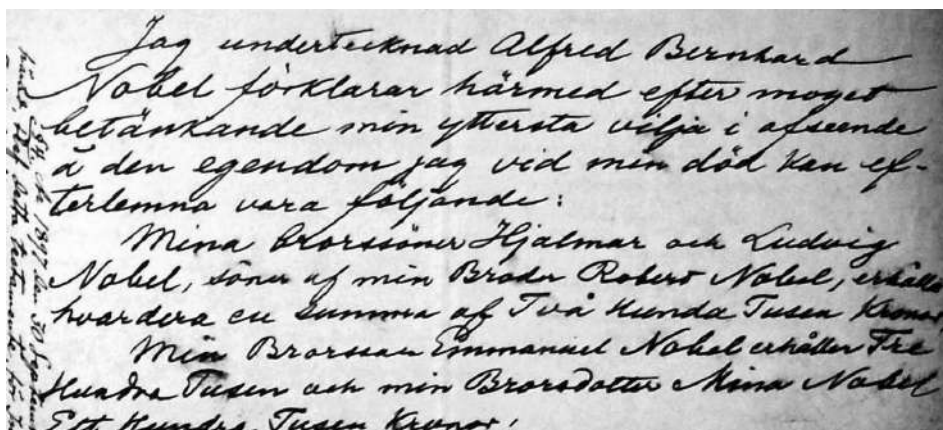 Jag undertecknad Alfred Bernhard
Nobel förklarar härmed efter moget
betänkande min yttersta vilja i afseende
å den egendom jag vid min död kan ef-
terlemna vara följande:
Mina Brorssöner Hjalmar och Ludvig
Nobel, söner af min Broder Robert Nobel, erhålla
hvardera en summa af Två Hundra Tusen Kronor
Min Brorsson Emmanuel Nobel erhåller Tre
Hundra Tusen och min Brorsdotter Mina Nobel
Ett Hundra Tusen Kronor.
1897 den
detta testamente